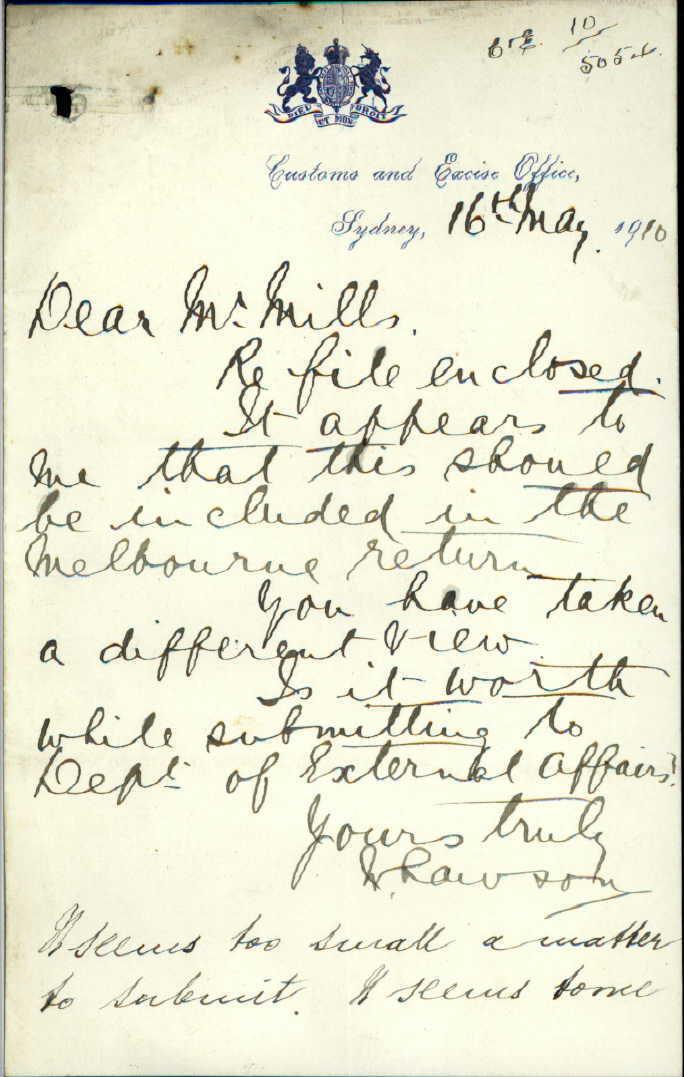 10
505
DIEU ET MON DROIT
Customs and Excise Office,
Sydney, 16th May 1910
Dear Mr. Mills.
Re file enclosed.
It appears to
me that this should
be included in the
Melbourne return
You have taken
a different view.
Is it worth
while submitting to
Dept of External Affairs?
Yours truly
Lawson
It seems too small a matter
to submit. It seems to me